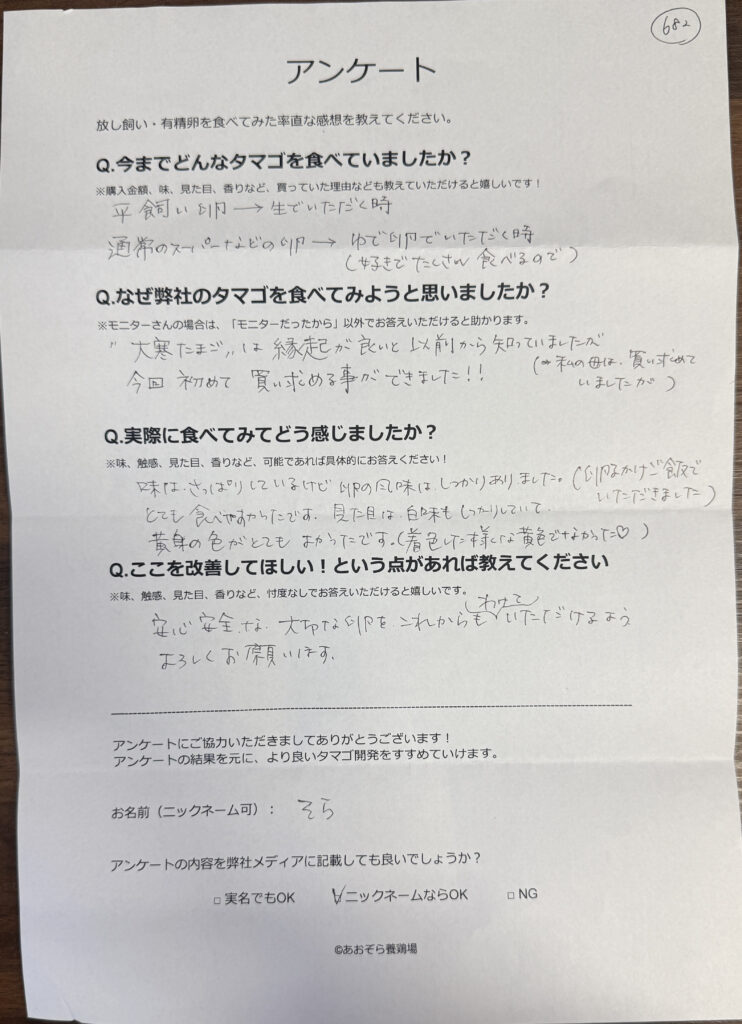 682
アンケート
放し飼い・有精卵を食べてみた率直な感想を教えてください。
Q.今までどんなタマゴを食べていましたか？
※購入金額、味、見た目、香りなど、買っていた理由なども教えていただけると嬉しいです！
平飼い卵→生でいただく時
通常のスーパーなどの卵→ゆで卵でいただく時
(好きでたくさん食べるので)
Q.なぜ弊社のタマゴを食べてみようと思いましたか？
※モニターさんの場合は、「モニターだったから」以外でお答えいただけると助かります。
"大寒たまご"は縁起が良いと以前から知っていましたが
(私の母は、買い求めて
いましたが)
今回初めて買い求める事ができました!!
Q.実際に食べてみてどう感じましたか？
※味、触感、見た目、香りなど、可能であれば具体的にお答えください！
味は、さっぱりしているけど卵の風味はしっかりありました。(卵かけご飯で
いただきました)
とても食べやすかったです。見た目は、白味もしっかりしていて、
黄身の色がとてもよかったです。(着色した様な黄色でなかった♡)
Q.ここを改善してほしい！という点があれば教えてください
※味、触感、見た目、香りなど、忖度なしでお答えいただけると嬉しいです。
安心安全な、大切な卵を、これからもわけていただけるよう
よろしくお願います。
アンケートにご協力いただきましてありがとうございます！
アンケートの結果を元に、より良いタマゴ開発をすすめていけます。
お名前（ニックネーム可）： そら
アンケートの内容を弊社メディアに記載しても良いでしょうか？
□ 実名でもOK ☑ニックネームならOK □ NG
©あおぞら養鶏場